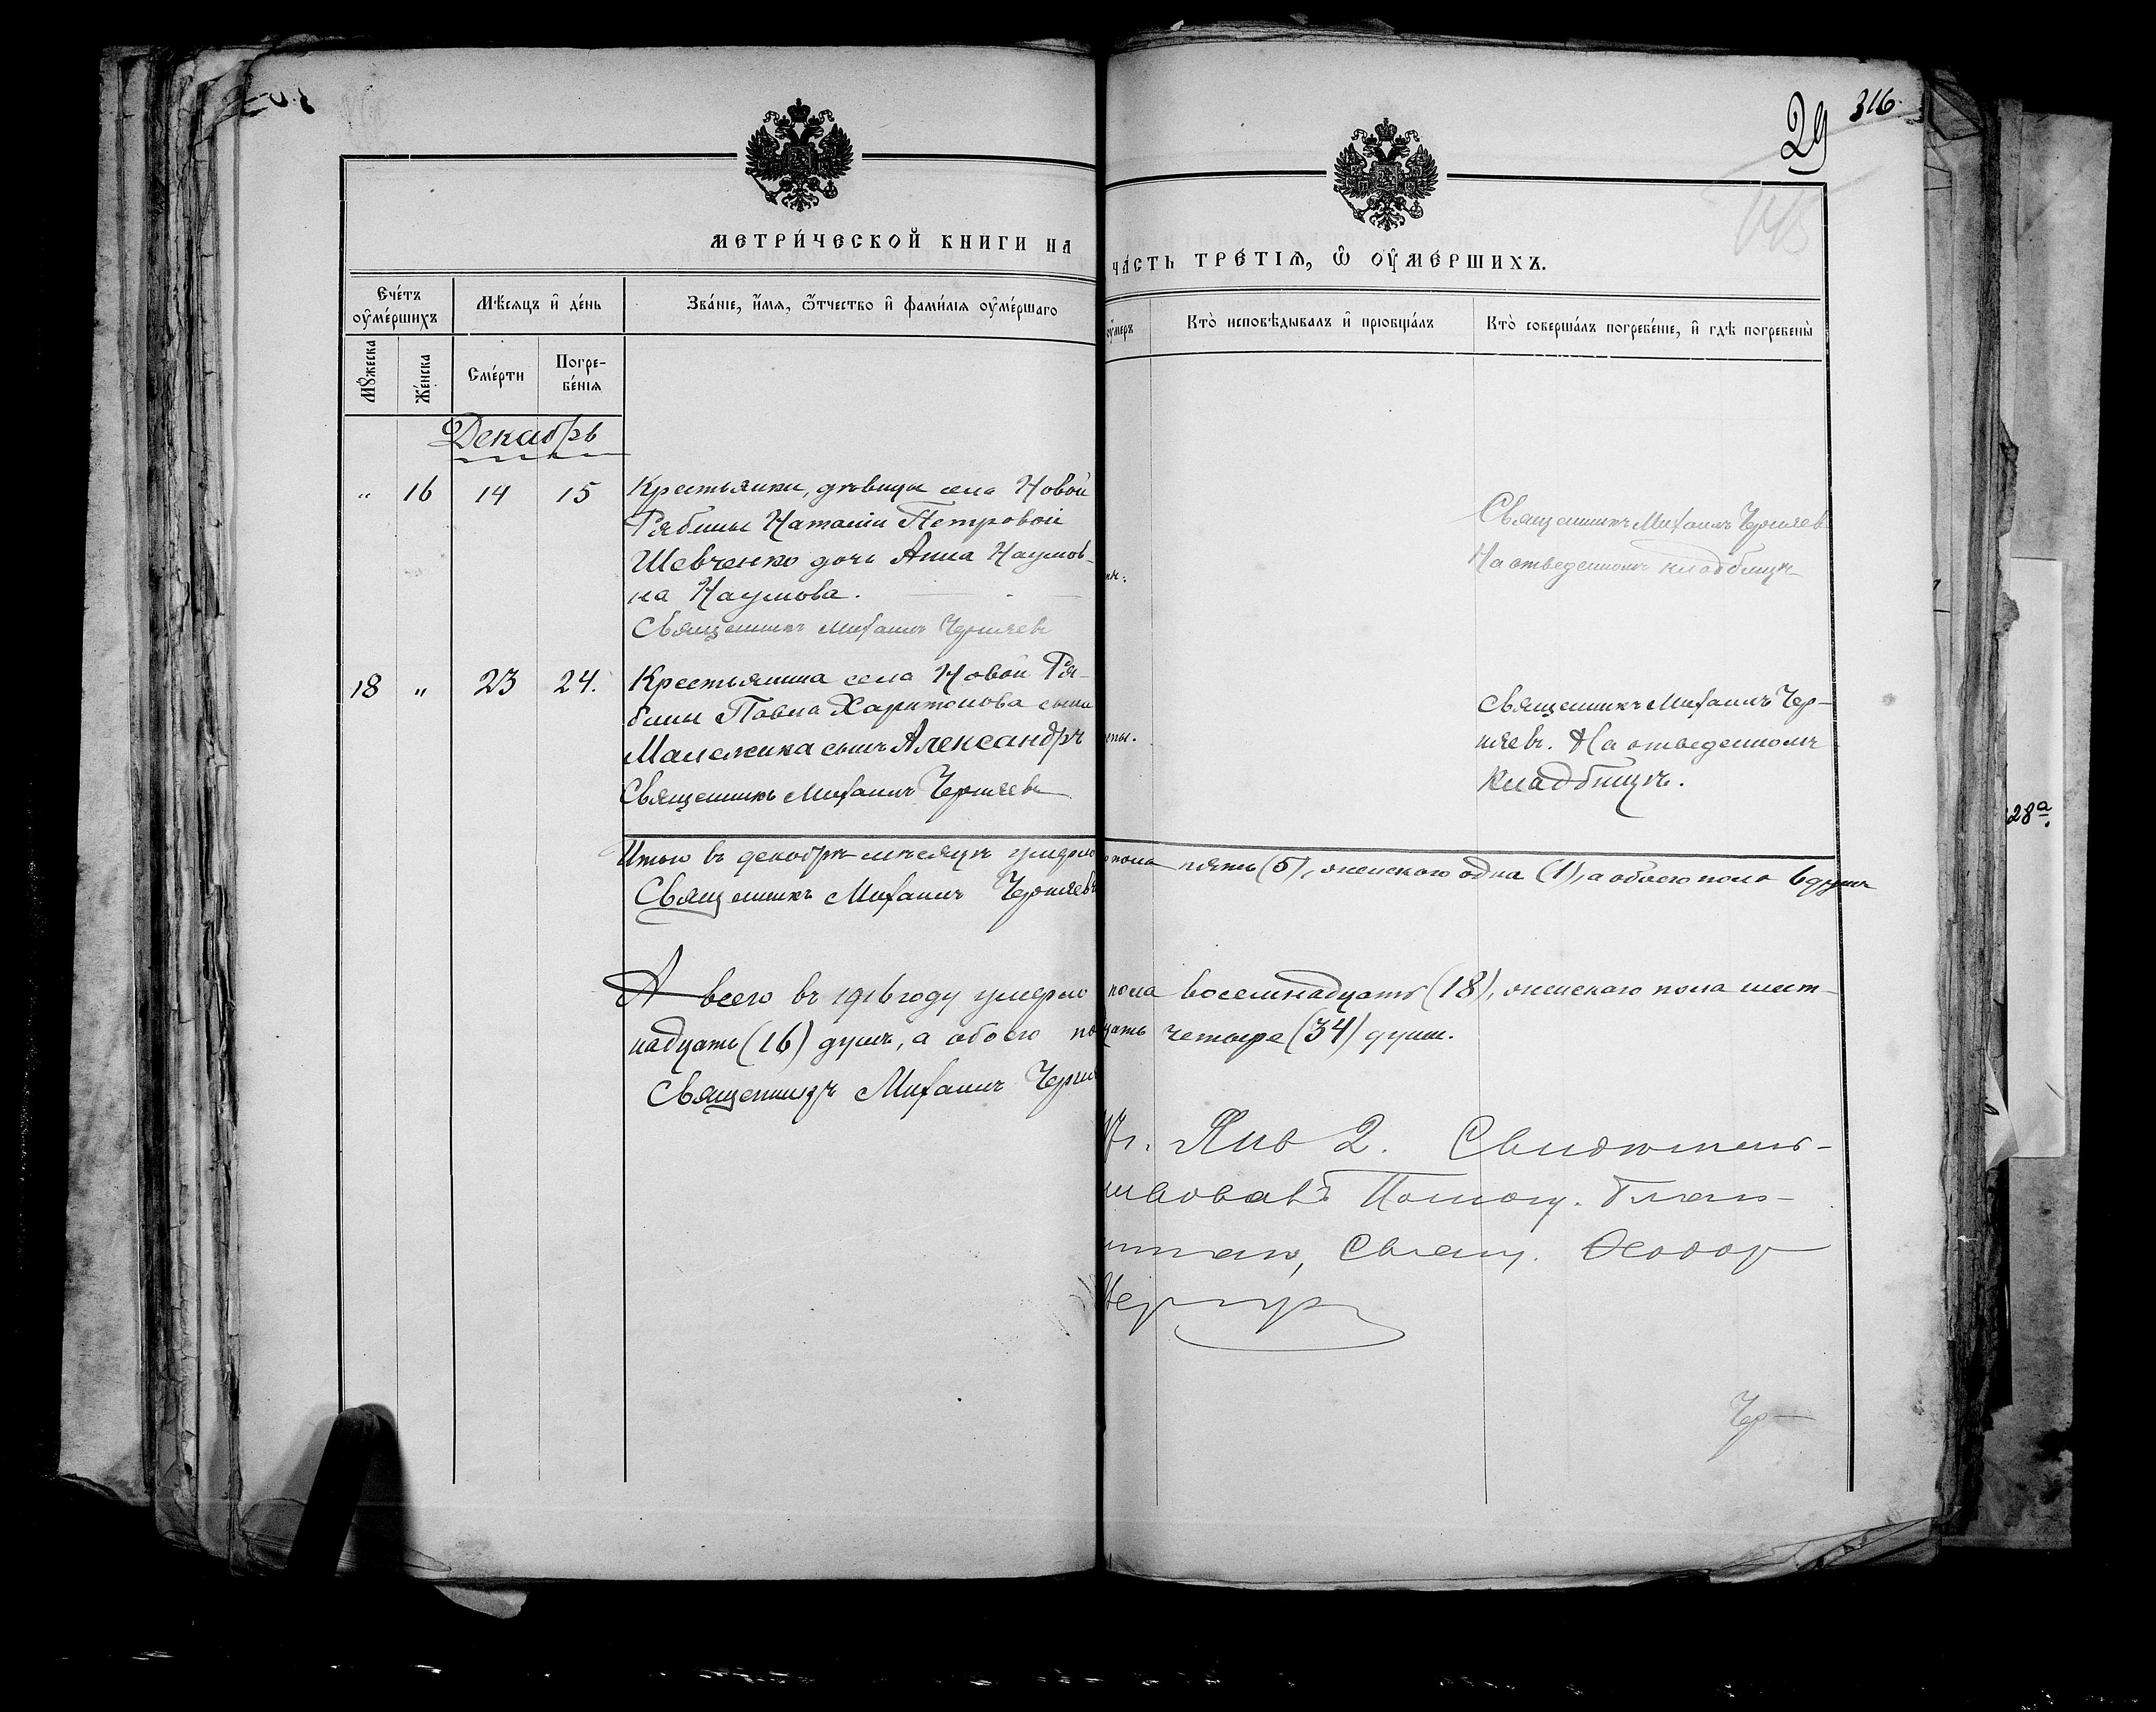 316.
29
МЕТРИ́ЧЕСКОЙ КНИГИ НА
ЧА́СТЬ ТРЕ́ТІѦ, Ѽ ОУ҆МЕ́РШИХЪ.
Сче́тъ оу҆ме́ршихъ
Мѣ́сяцъ и҆ де́нь
Зва́ніе, и҆́мѧ, ѻ҆́тчество и҆ фами́лія оу҆ме́ршаго
оу҆́меръ
Кто̀ исповѣ́дывалъ и҆ прїобща́лъ
Кто̀ соверша́лъ погребе́ніе, и҆ гдѣ̀ погребены̀
Мꙋ́жеска
Же́нска
Сме́рти
Погре-
бе́нія
Декабрь
" 16 14 15
Крестьянки, дѣвицы села Новой
Рябины Наталіи Петровой
Шевченко дочь Анна Наумов-
на Наумова.
Священникъ Михаилъ Черняевъ
Священникъ Михаилъ Черняев
На отведенномъ кладбищѣ
18 " 23 24.
Крестьянина села Новой Ря-
бины Павла Харитонова сына
Малежика сынъ Александръ
Священникъ Михаилъ Черняевъ
Священникъ Михаилъ Чер-
няевъ. На отведенномъ
кладбищѣ.
Итого въ декабрѣ мѣсяцѣ умерло
пола пять (5), женскаго одна (1), а обоего пола 6 душъ
Священникъ Михаилъ Черняевъ
А всего въ 1916 году умерло
пола восемнадцать (18), женскаго пола шест-
надцать (16) душъ, а обоего по
цать четыре (34) души.
Священникъ Михаилъ Черня
Янв 2. Свидѣтель-
ствовалъ Помощ. Благо-
чиннаго, Свящ. Ѳеодор
28а.